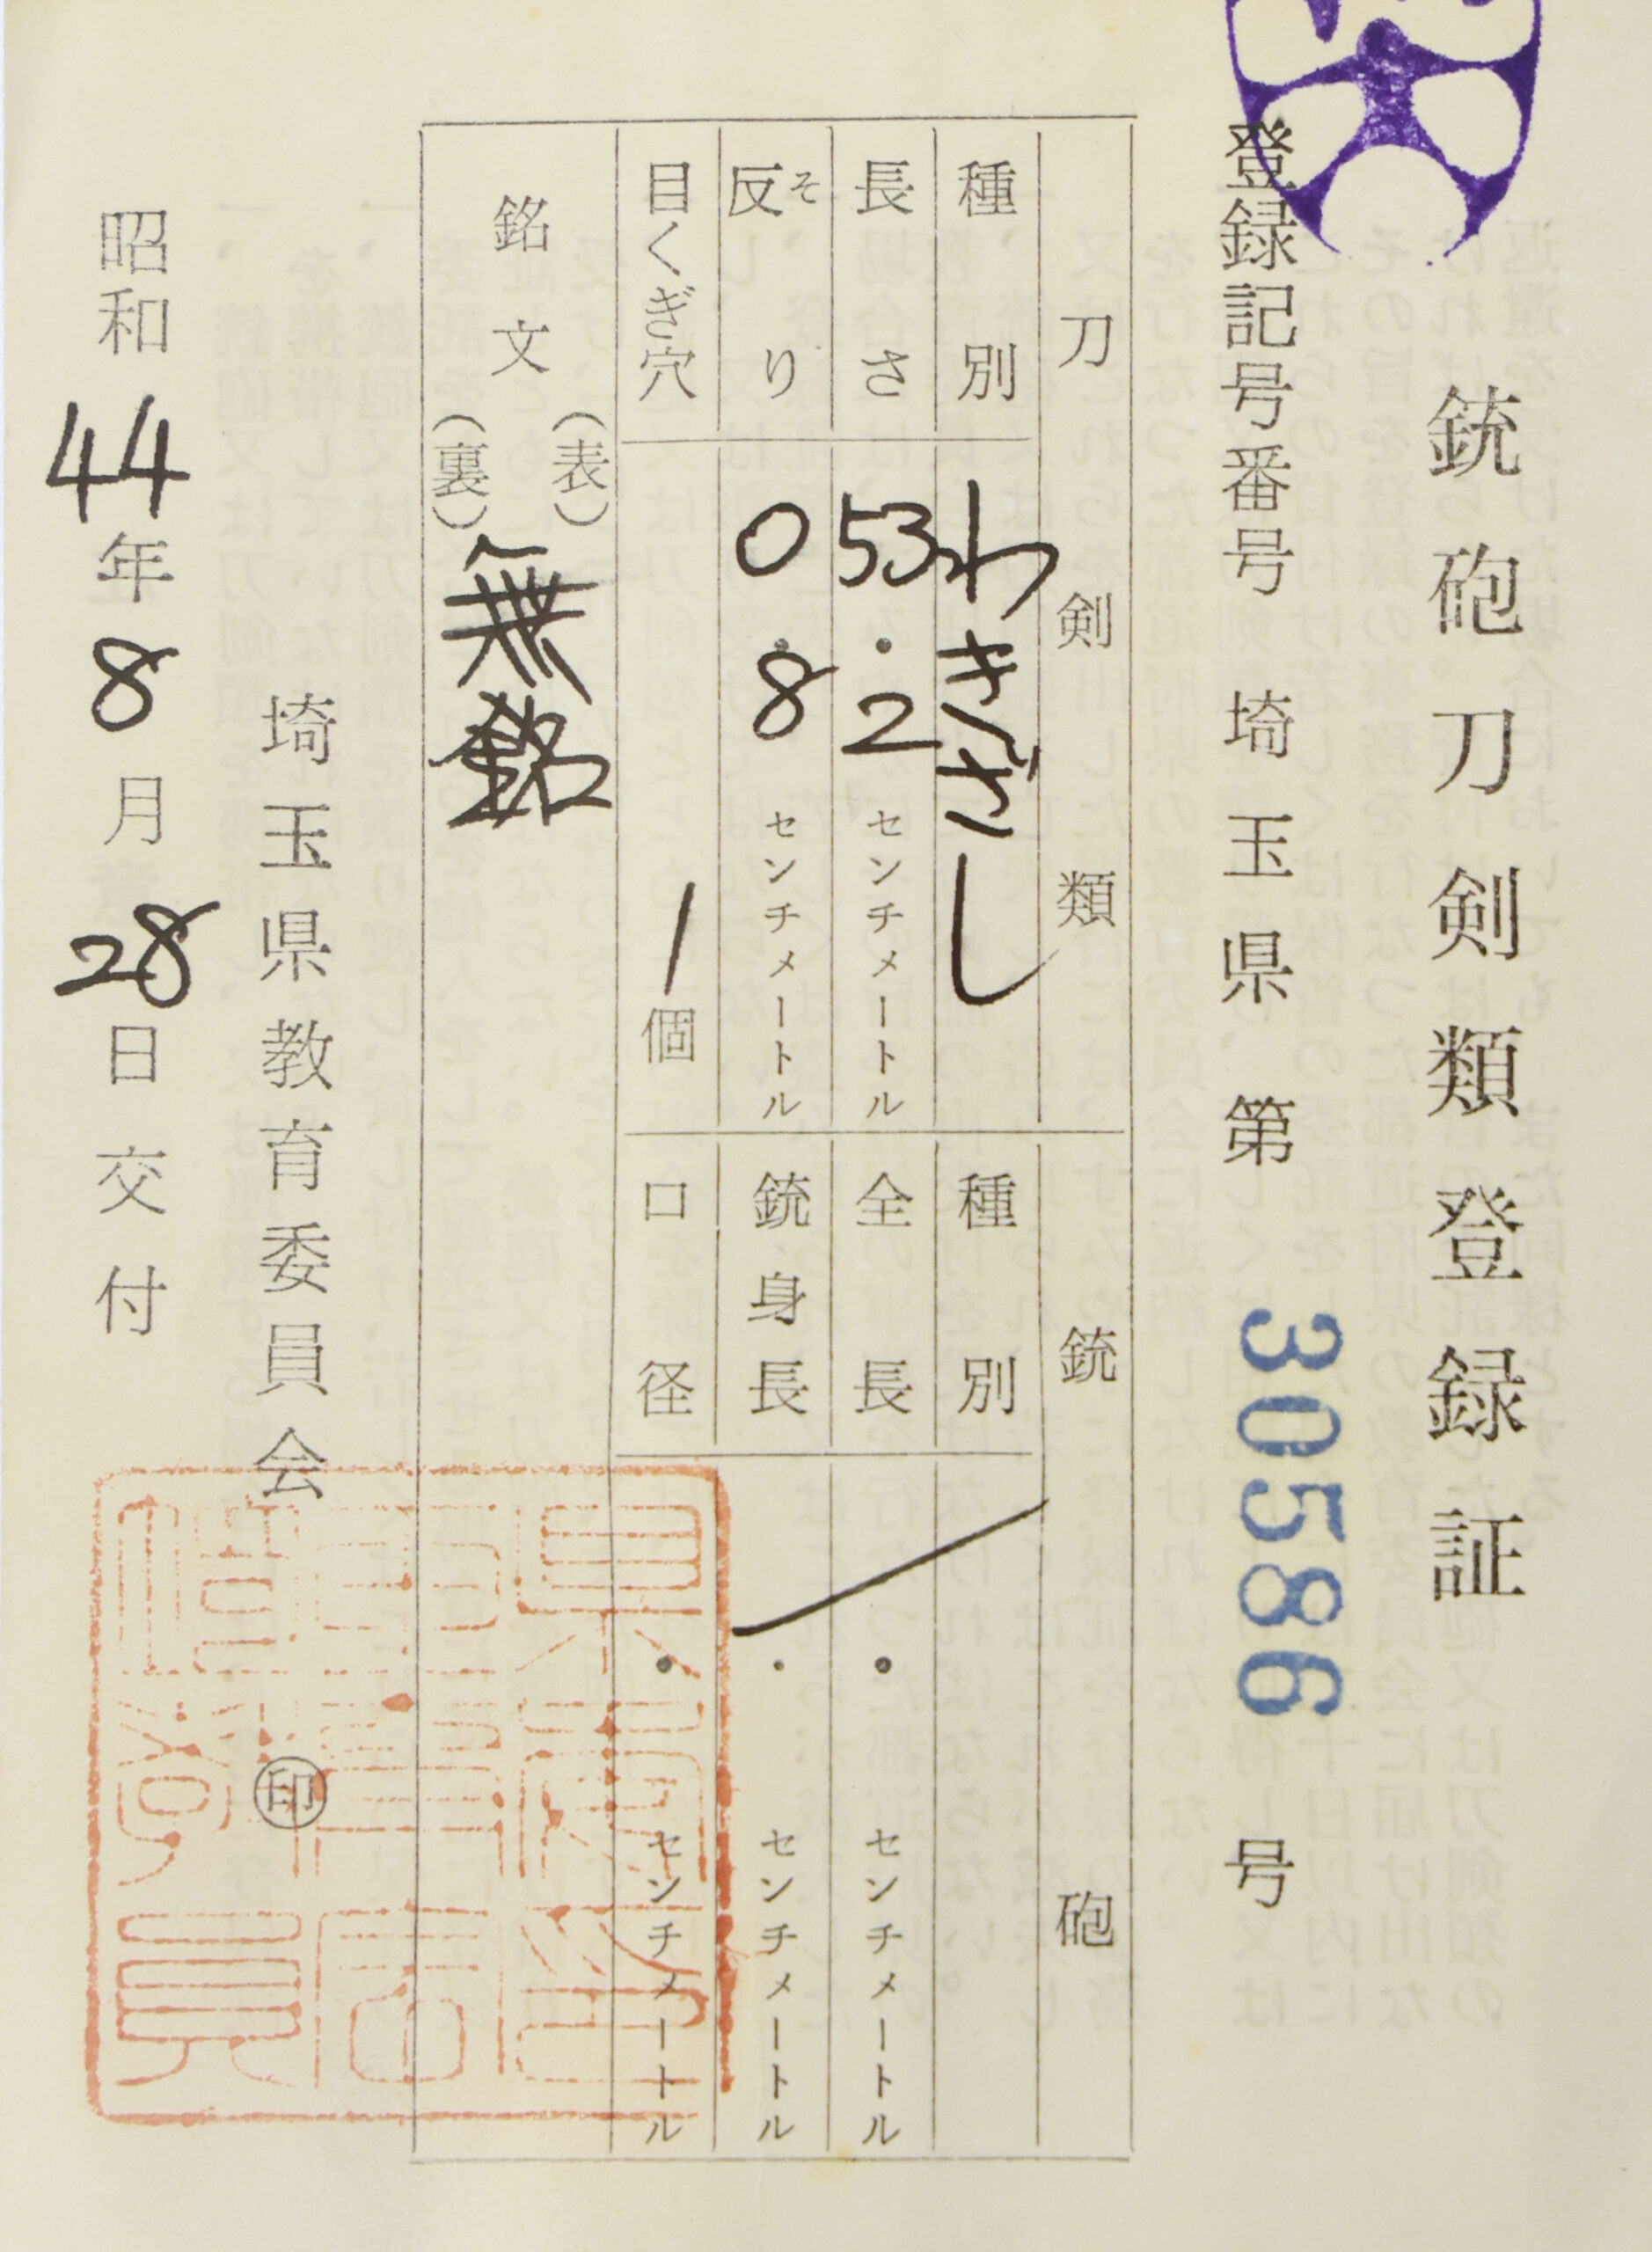 銃砲刀剣類登録証
登録記号番号 埼玉県 第 30586 号
刀剣類
種別 わきざし
長さ 53.2 センチメートル
反り そ 0.8 センチメートル
目くぎ穴 1 個
銃砲
種別
全長 . センチメートル
銃身長 . センチメートル
口径 . センチメートル
銘文
(表)
(裏)
無銘
埼玉県教育委員会 ㊞
昭和 44 年 8 月 28 日 交付